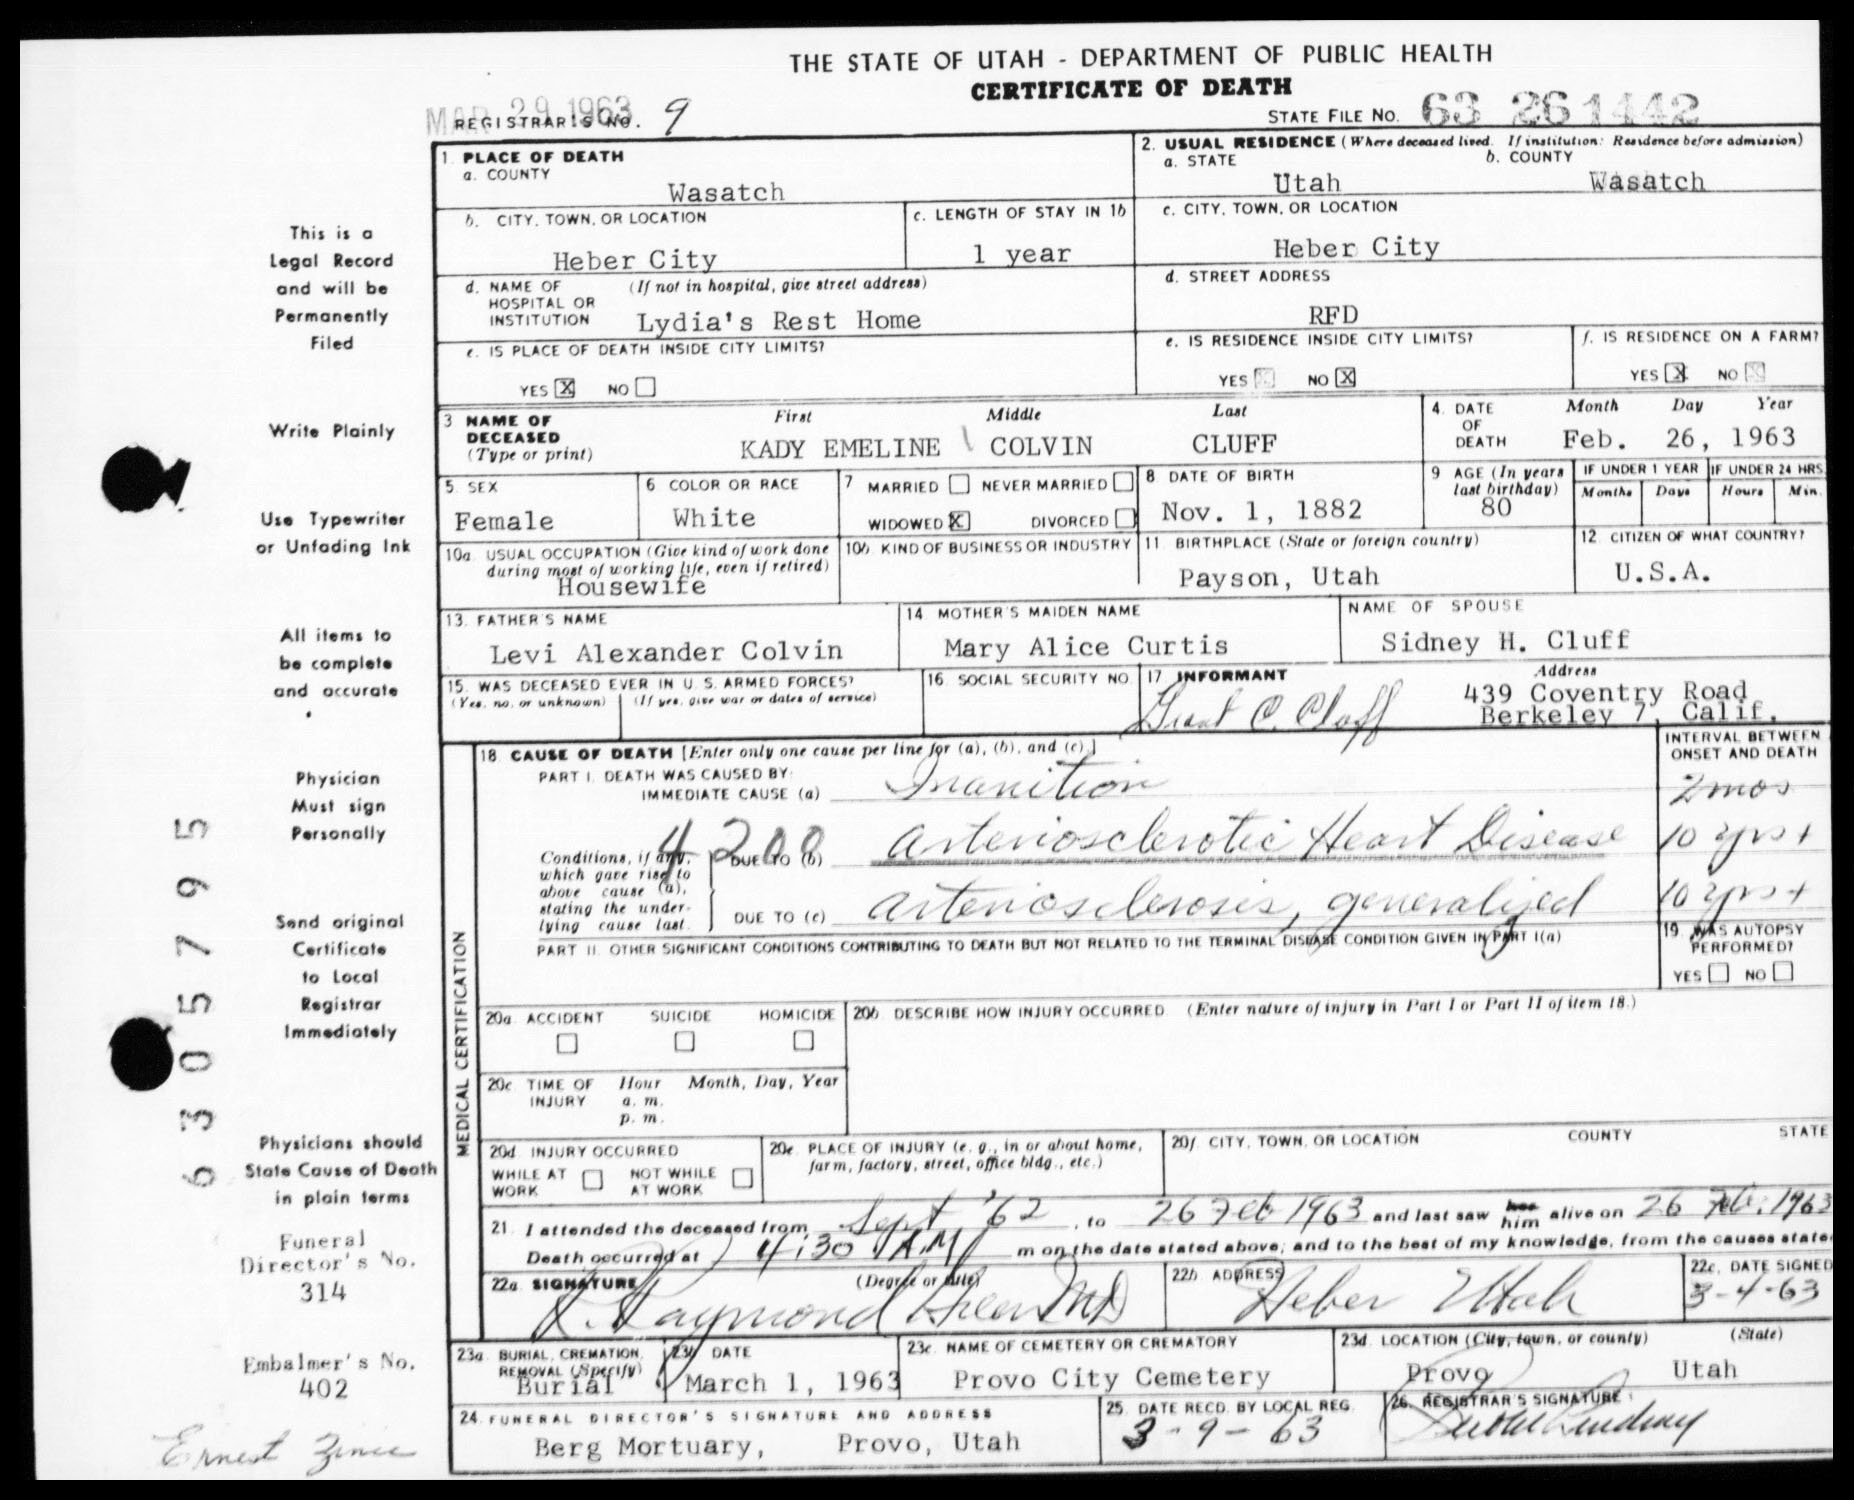 THE STATE OF UTAH - DEPARTMENT OF PUBLIC HEALTH
CERTIFICATE OF DEATH
MAR 29 1963
REGISTRAR'S NO. 9
STATE FILE NO. 63 26 1442
This is a
Legal Record
and will be
Permanently
Filed
Write Plainly
Use Typewriter
or Unfading Ink
All items to
be complete
and accurate
Physician
Must sign
Personally
Send original
Certificate
to Local
Registrar
Immediately
Physicians should
State Cause of Death
in plain terms
Funeral
Director's No.
314
Embalmer's No.
402
Ernest
6305795
1. PLACE OF DEATH
a. COUNTY
Wasatch
2. USUAL RESIDENCE (Where deceased lived. If institution: Residence before admission)
a. STATE
Utah
b. COUNTY
Wasatch
b. CITY, TOWN, OR LOCATION
Heber City
c. LENGTH OF STAY IN 1b
1 year
c. CITY, TOWN, OR LOCATION
Heber City
d. NAME OF (If not in hospital, give street address)
HOSPITAL OR
INSTITUTION Lydia's Rest Home
d. STREET ADDRESS
RFD
e. IS PLACE OF DEATH INSIDE CITY LIMITS?
YES X NO
e. IS RESIDENCE INSIDE CITY LIMITS?
YES NO X
f. IS RESIDENCE ON A FARM?
YES X NO
3 NAME OF
DECEASED
(Type or print)
First Middle Last
KADY EMELINE COLVIN CLUFF
4. DATE
OF
DEATH
Month Day Year
Feb. 26, 1963
5. SEX
Female
6 COLOR OR RACE
White
7 MARRIED NEVER MARRIED
WIDOWED X DIVORCED
8 DATE OF BIRTH
Nov. 1, 1882
9 AGE (In years
last birthday)
80
IF UNDER 1 YEAR
Months Days
IF UNDER 24 HRS.
Hours Min.
10a. USUAL OCCUPATION (Give kind of work done
during most of working life, even if retired)
Housewife
10b. KIND OF BUSINESS OR INDUSTRY
11. BIRTHPLACE (State or foreign country)
Payson, Utah
12. CITIZEN OF WHAT COUNTRY?
U.S.A.
13. FATHER'S NAME
Levi Alexander Colvin
14 MOTHER'S MAIDEN NAME
Mary Alice Curtis
NAME OF SPOUSE
Sidney H. Cluff
15. WAS DECEASED EVER IN U.S. ARMED FORCES?
(Yes, no, or unknown) (If yes, give war or dates of service)
16. SOCIAL SECURITY NO.
17 INFORMANT
Grant C. Cluff
Address
439 Coventry Road
Berkeley 7, Calif.
MEDICAL CERTIFICATION
18. CAUSE OF DEATH [Enter only one cause per line for (a), (b), and (c).]
INTERVAL BETWEEN
ONSET AND DEATH
PART I. DEATH WAS CAUSED BY:
IMMEDIATE CAUSE (a) Inanition 2 mos
4200
Conditions, if any,
which gave rise to
above cause (a),
stating the under-
lying cause last.
DUE TO (b) Arteriosclerotic Heart Disease 10 yrs +
DUE TO (c) Arteriosclerosis, generalized 10 yrs +
PART II. OTHER SIGNIFICANT CONDITIONS CONTRIBUTING TO DEATH BUT NOT RELATED TO THE TERMINAL DISEASE CONDITION GIVEN IN PART I(a)
19. WAS AUTOPSY
PERFORMED?
YES NO
20a. ACCIDENT SUICIDE HOMICIDE
20b. DESCRIBE HOW INJURY OCCURRED. (Enter nature of injury in Part I or Part II of item 18.)
20c. TIME OF INJURY
Hour Month, Day, Year
a. m.
p. m.
20d. INJURY OCCURRED
WHILE AT WORK
NOT WHILE AT WORK
20e. PLACE OF INJURY (e. g., in or about home,
farm, factory, street, office bldg., etc.)
20f. CITY, TOWN, OR LOCATION COUNTY STATE
21. I attended the deceased from Sept '62, to 26 Feb 1963 and last saw her him alive on 26 Feb. 1963
Death occurred at 4:30 A.M. m on the date stated above; and to the best of my knowledge, from the causes state
22a. SIGNATURE (Degree or title)
R. Raymond Green MD
22b. ADDRESS
Heber Utah
22c. DATE SIGNED
3-4-63
23a. BURIAL, CREMATION,
REMOVAL (Specify)
Burial
23b. DATE
March 1, 1963
23c. NAME OF CEMETERY OR CREMATORY
Provo City Cemetery
23d. LOCATION (City, town, or county) (State)
Provo Utah
24. FUNERAL DIRECTOR'S SIGNATURE AND ADDRESS
Berg Mortuary, Provo, Utah
25. DATE RECD. BY LOCAL REG.
3-9-63
26. REGISTRAR'S SIGNATURE
Lindsay